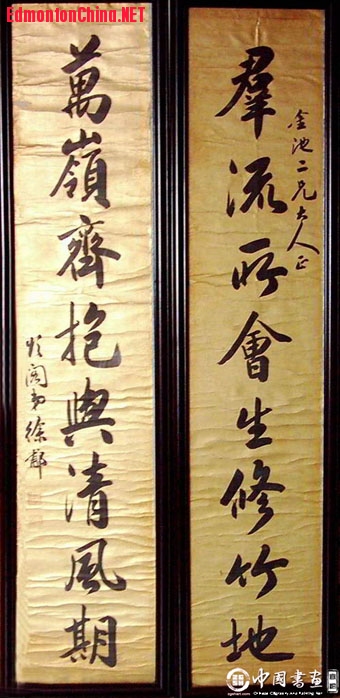 EdmontonChina.NET
羣流所會生修竹地
金池二兄大人正
萬嶺齊抱與清風期
頌閣弟徐郙
中国書画